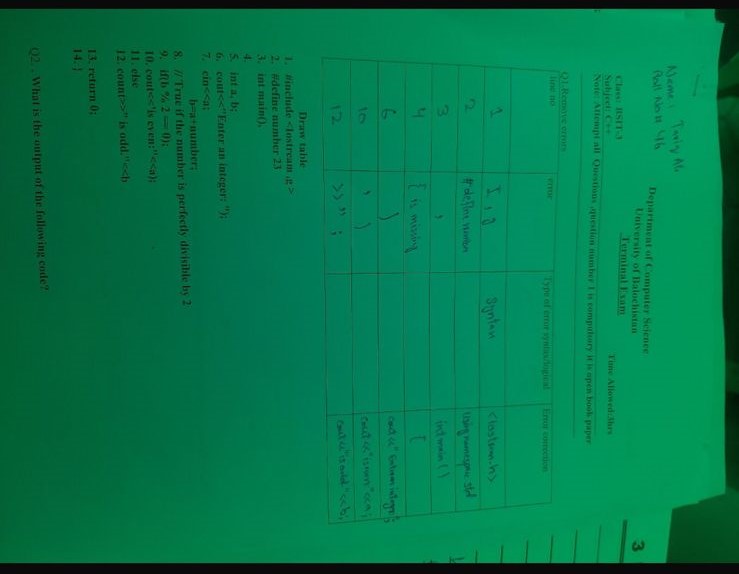 Name: Tariq Ali
Roll No 46
3
Department of Computer Science
University of Balochistan
Terminal Exam
Class: BSIT-3
Time Allowed:3hrs
Subject: C++
Note: Attempt all Questions ,question number 1 is compulsory it is open book paper
Q1.Remove errors
line no error Type of error syntax/logical Error correction
1 I , g Syntax <iostream.h>
2 # define number Using namespace std
3 , int main ()
4 { is missing {
6 ) cout <<" Enter an integer";
10 ' ) cout <<"is even" <<a;
12 >> " ; cout <<"is odd" <<b;
Draw table
1. #include <Iostream ,g>
2. #define number 23
3. int main(),
4.
5. int a, b;
6. cout<<"Enter an integer: ");
7. cin<<a;
b=a+number;
8. // True if the number is perfectly divisible by 2
9. if(b % 2 == 0);
10. cout<<'is even:"<<a);
11. else
12. count>>" is odd:"<<b
13. return 0;
14. }
Q2.. What is the output of the following code?